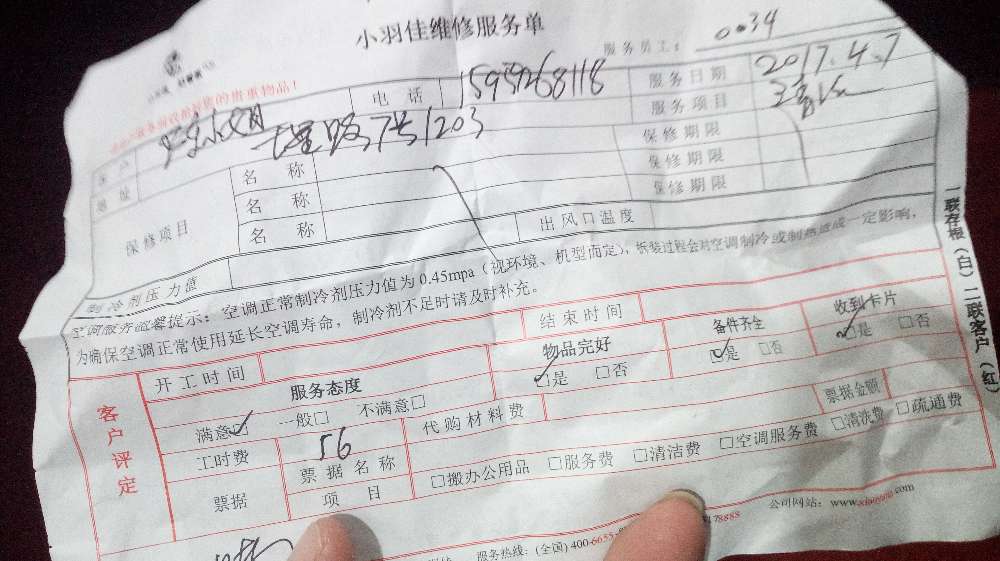 小羽佳维修服务单
服务员工： 0034
的贵重物品！
电 话 15959268118 服务日期 2017.4.7
路7号1203 服务项目
保修项目 名 称 保修期限
名 称 保修期限
名 称 保修期限
制冷剂压力值 出风口温度
空调服务温馨提示：空调正常制冷剂压力值为0.45mpa（视环境、机型而定），拆装过程会对空调制冷或制热造成一定影响，
为确保空调正常使用延长空调寿命，制冷剂不足时请及时补充。
开工时间 结束时间
客户评定 服务态度 物品完好 备件齐全 收到卡片
满意☑ 一般□ 不满意□ ☑是 □否 ☑是 □否 ☑是 □否
工时费 56 代购材料费 票据金额
票据 票据名称 □搬办公用品 □服务费 □清洁费 □空调服务费 □清洗费 □疏通费
项 目
服务热线：(全国) 400-6655- 8888 公司网站：www. .com
一联存根（白）二联客户（红）